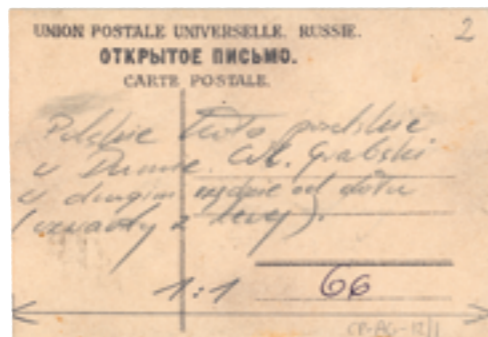 2
UNION POSTALE UNIVERSELLE. RUSSIE.
ОТКРЫТОЕ ПИСЬМО.
CARTE POSTALE.
Polskie Koło poselskie
w Dumie. Wł. Grabski
w drugim rzędzie od dołu
(czwarty z lewej).
1:1 66
CP-AG-12/1